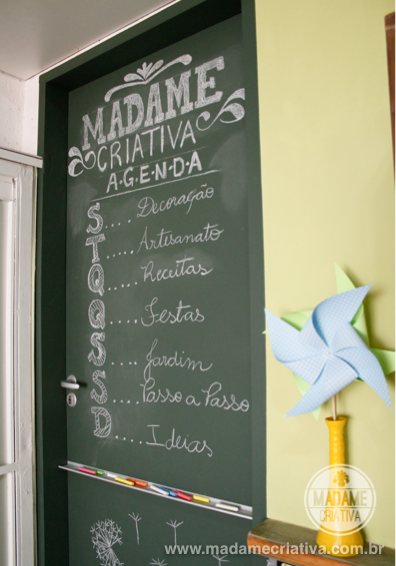 MADAME
CRIATIVA
A.G.E.N.D.A
S.... Decoração
T.... Artesanato
Q.... Receitas
Q..... Festas
S..... Jardim
S..... Passo a Passo
D.... Ideias
MADAME
CRIATIVA
www.madamecriativa.com.br